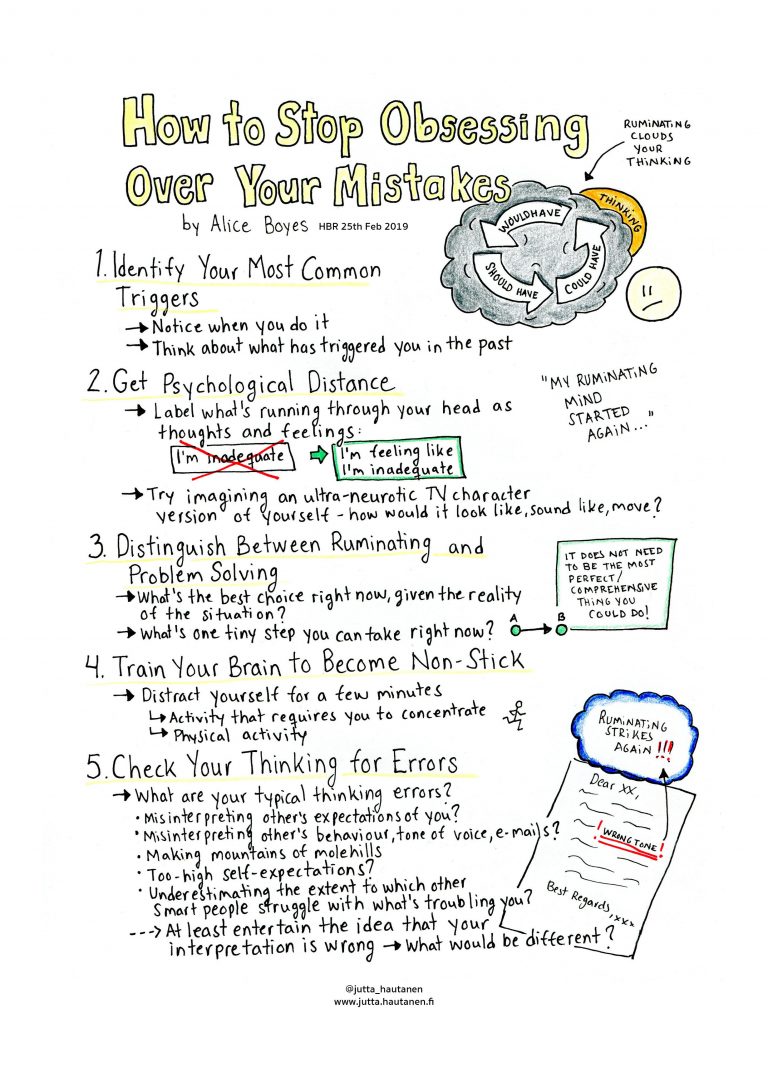 How to Stop Obsessing
Over Your Mistakes
by Alice Boyes HBR 25th Feb 2019
RUMINATING
CLOUDS
YOUR
THINKING
THINKING
WOULD HAVE
COULD HAVE
SHOULD HAVE
1. Identify Your Most Common
Triggers
→ Notice when you do it
→ Think about what has triggered you in the past
2. Get Psychological Distance
→ Label what's running through your head as
thoughts and feelings:
I'm inadequate → I'm feeling like
I'm inadequate
"MY RUMINATING
MIND
STARTED
AGAIN..."
→ Try imagining an ultra-neurotic TV character
version of yourself - how would it look like, sound like, move?
3. Distinguish Between Ruminating and
Problem Solving
→ What's the best choice right now, given the reality
of the situation?
→ What's one tiny step you can take right now?
A → B
IT DOES NOT NEED
TO BE THE MOST
PERFECT/
COMPREHENSIVE
THING YOU
COULD DO!
4. Train Your Brain to Become Non-Stick
→ Distract yourself for a few minutes
↳ Activity that requires you to concentrate
↳ Physical activity
5. Check Your Thinking for Errors
→ What are your typical thinking errors?
• Misinterpreting other's expectations of you?
• Misinterpreting other's behaviour, tone of voice, e-mails?
• Making mountains of molehills
• Too-high self-expectations?
• Underestimating the extent to which other
smart people struggle with what's troubling you?
---> At least entertain the idea that your
interpretation is wrong → What would be different?
RUMINATING
STRIKES
AGAIN !!!
Dear XX,
! WRONG TONE !
Best Regards, xxx
@jutta_hautanen
www.jutta.hautanen.fi